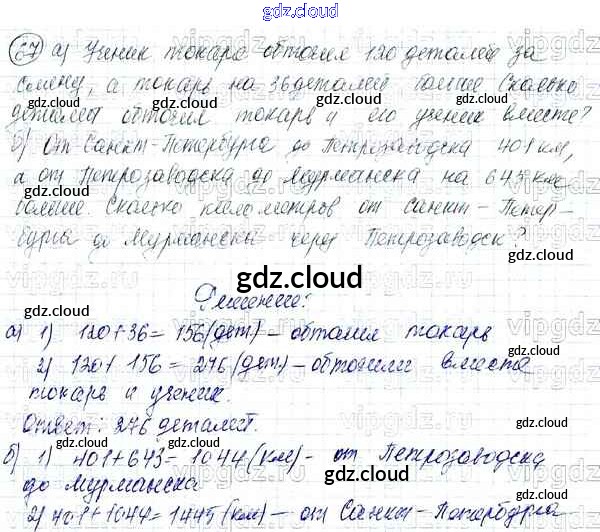 gdz.cloud
67 а) Ученик токаря обточил 120 деталей за
смену, а токарь на 36 деталей больше. Сколько
gdz.cloud gdz.cloud gdz.cloud
деталей обточил токарь и его ученик вместе?
б) От Санкт-Петербурга до Петрозаводска 401 км,
а от Петрозаводска до Мурманска на 643 км
gdz.cloud gdz.cloud gdz.cloud
больше. Сколько километров от Санкт-Петер-
бурга до Мурманска через Петрозаводск?
gdz.cloud
Решение:
gdz.cloud gdz.cloud
а) 1) 120+36=156(дет)-обточил токарь
2) 120+156=276(дет)-обточили вместе
gdz.cloud gdz.cloud gdz.cloud
токарь и ученик.
Ответ: 276 деталей.
б) 1) 401+643=1044(км)-от Петрозаводска
gdz.cloud gdz.cloud gdz.cloud
до Мурманска
2) 401+1044=1445(км)-от Санкт-Петербурга